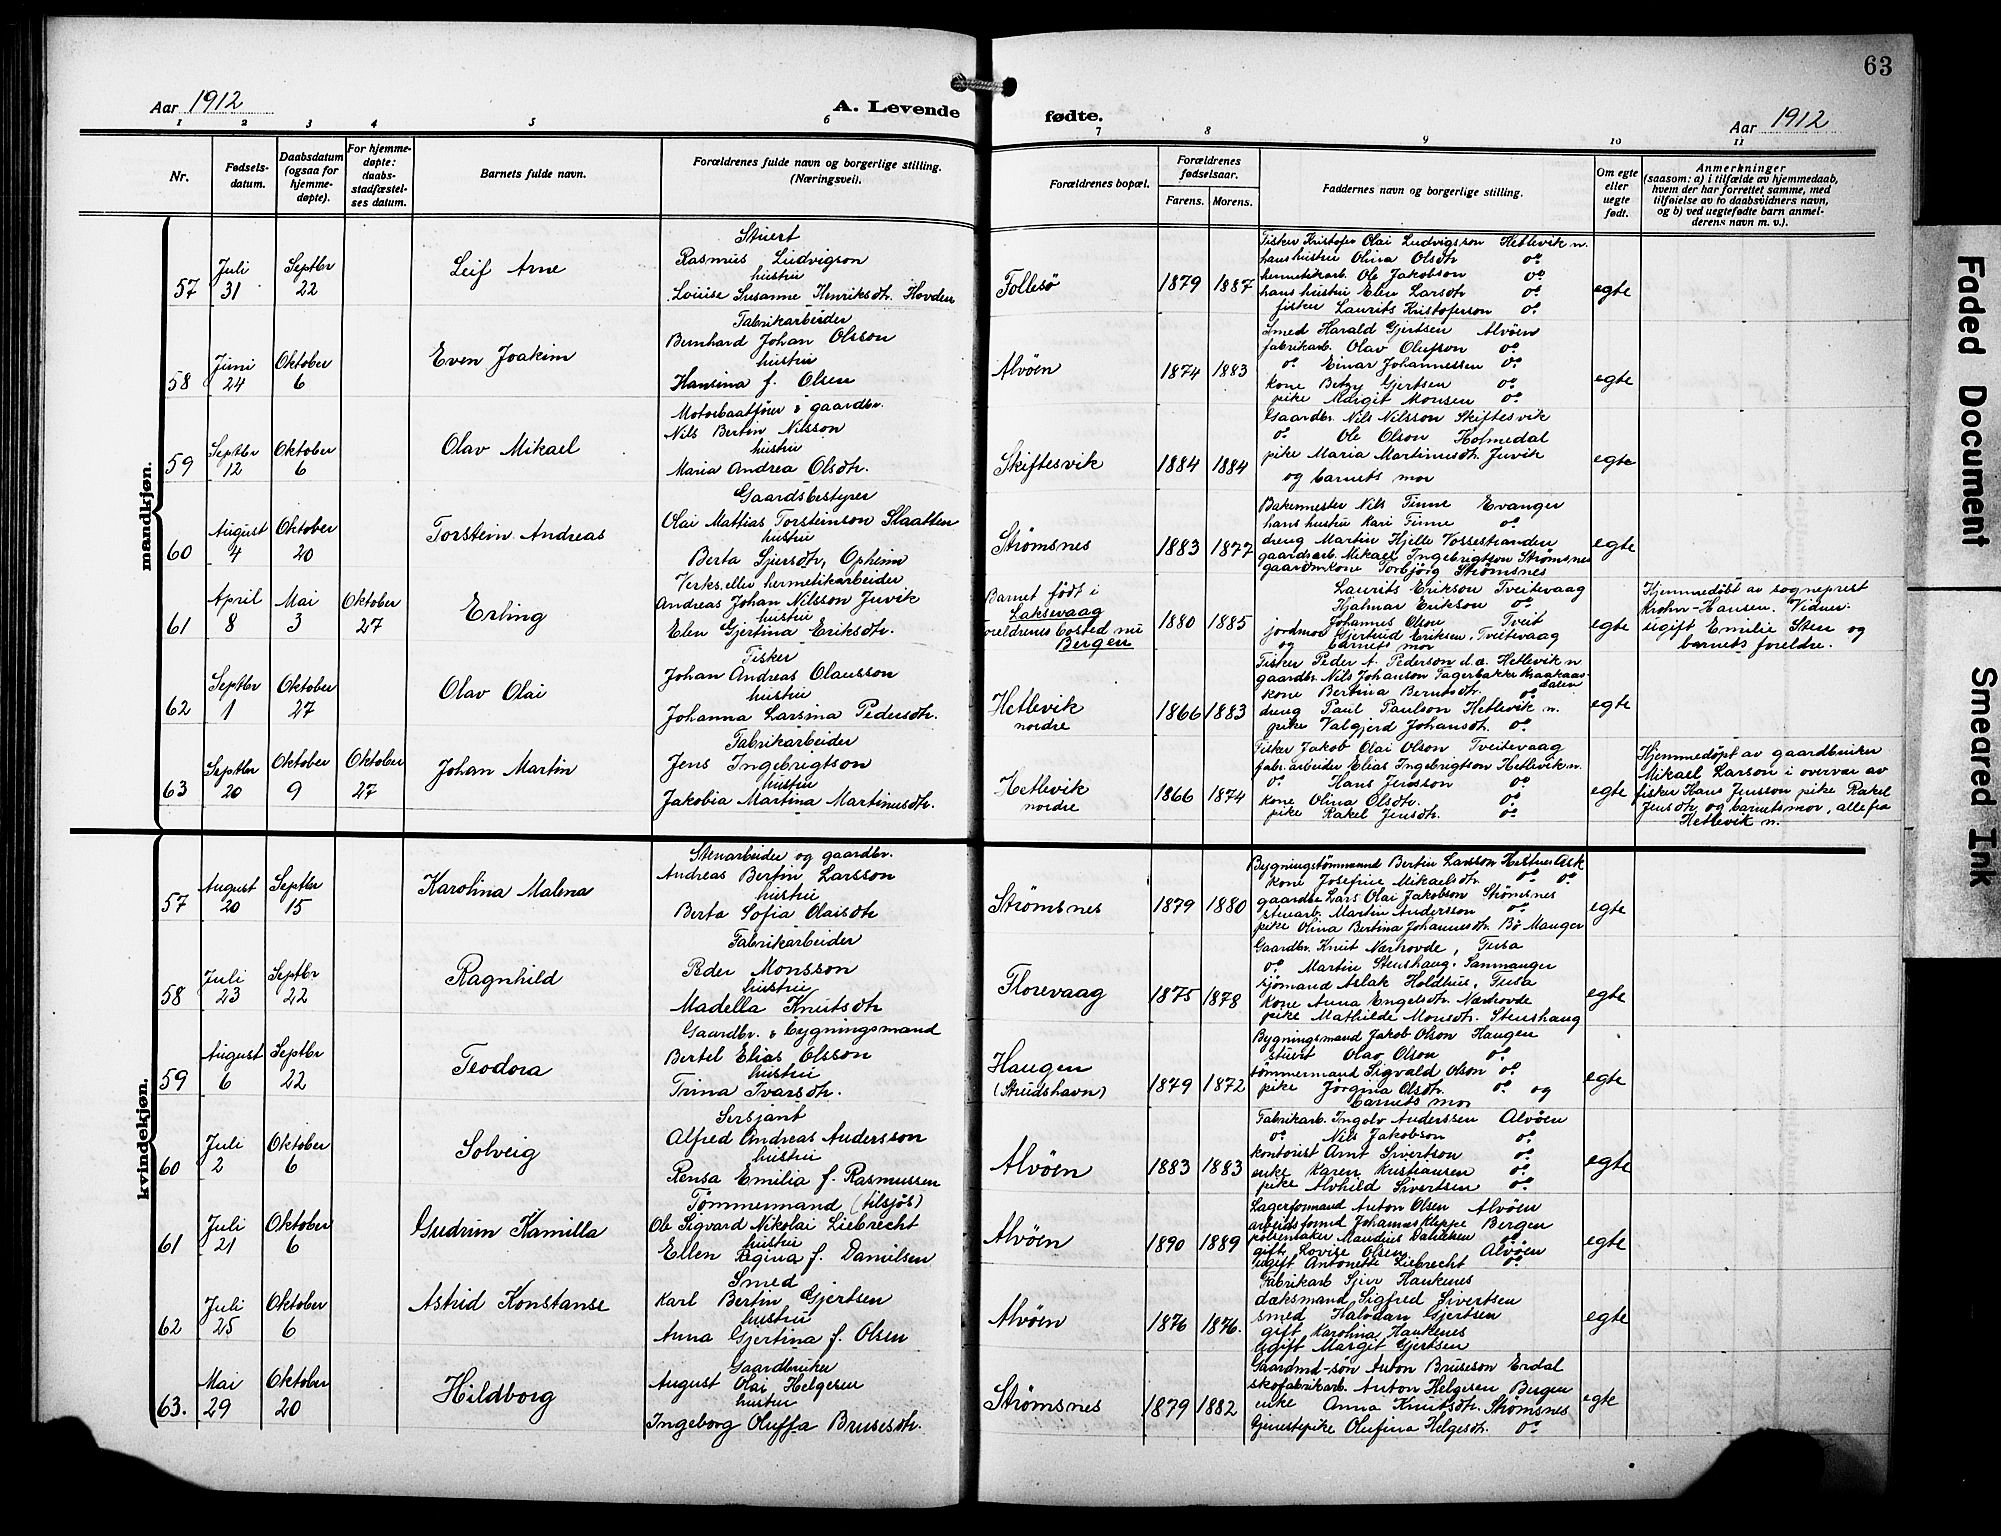 63
Aar 1912
A. Levende fødte.
Aar 1912
1 2 3 4 5 6 7 8 9 10 11
Nr.
Fødsels-
datum.
Daabsdatum
(ogsaa for
hjemme-
døpte).
For hjemme-
døpte:
daabs-
stadfæstel-
ses datum.
Barnets fulde navn.
Forældrenes fulde navn og borgerlige stilling.
(Næringsvei).
Forældrenes bopæl.
Forældrenes
fødselsaar.
Farens. Morens.
Faddernes navn og borgerlige stilling.
Om egte
eller
uegte
født.
Anmerkninger
(saasom: a) i tilfælde av hjemmedaab,
hvem der har forrettet samme, med
tilføielse av to daabsvidners navn,
og b) ved uegtefødte barn anmel-
derens navn m. v.).
mandkjøn.
57
Juli
31
Septbr
22
Leif Arne
Stuert
Rasmus Ludvigson
hustru
Louise Susanne Henriksdtr. Hovden
Follesö
1879 1887
Fisker Kristofer Olai Ludvigsson Hetlevik n.
hans hustru Olina Olsdtr do
hermetikarb. Ole Jakobson do
hans hustru Elen Larsdtr do
fisker Laurits Kristoferson do
egte
58
Juni
24
Oktober
6
Even Joakim
Fabrikarbeider
Bernhard Johan Olsson
hustru
Hansina f. Olsen
Alvöen
1874 1883
Smed Harald Gjertsen Alvöen
fabrikarb. Olav Olufson do
do Einar Johannessen do
kone Betzy Gjertsen do
pike Margit Monsen do
egte
59
Septbr
12
Oktober
6
Olav Mikael
Motorbaatfører & gaardbr.
Nils Bertin Nilsson
hustru
Maria Andrea Olsdtr.
Skiftesvik
1884 1884
Gaardbr. Nils Nilsson Skiftesvik
do Ole Olson Holmedal
pike Maria Martinusdtr Juvik
og barnets mor
egte
60
August
4
Oktober
20
Torstein Andreas
Gaardsbestyrer
Olai Mattias Torsteinson Slaatten
hustru
Berta Sjursdtr, Opheim
Strømsnes
1883 1877
Bakermester Nils Finne Evanger
hans hustru Kari Finne do
dreng Martin Hjelle Vossestranden
gaardsarb. Mikael Ingebrigtson Strømsnes
gaardmkone Torbjörg Strømsnes
egte
61
April
8
Mai
3
Oktober
27
Erling
Verks. eller hermetikarbeider
Andreas Johan Nilsson Juvik
hustru
Elen Gjertina Eriksdtr.
Barnet født i
Laksevaag
foreldrenes bosted nu
Bergen
1880 1885
Laurits Erikson Tveitevaag
Hjalmar Erikson do
Johannes Olson Tveit
jordmor Gjertrud Eriksen, Tveitevaag
og barnets mor
egte
Hjemmedøbt av sogneprest
Krohn-Hansen. Vidner:
ugift Emilie Sten og
barnets foreldre.
62
Septbr
1
Oktober
27
Olav Olai
Fisker
Johan Andreas Olausson
hustru
Johanna Larsina Pedersdtr.
Hetlevik
nordre
1866 1883
Fisker Peder A. Pederson d.æ. Hetlevik n
gaardbr. Nils Johanson Fagerbakke Kraakaas-
dalen
kone Bertina Berntsdtr. do
dreng Paul Paulson Hetlevik n.
pike Valgjerd Johansdtr. do
egte
63
Septbr
20
Oktober
9
Oktober
27
Johan Martin
Fabrikarbeider
Jens Ingebrigtson
hustru
Jakobia Martina Martinusdtr.
Hetlevik
nordre
1866 1874
Fisker Jakob Olai Olson Tveitevaag
fabr. arbeider Elias Ingebrigtson Hetlevik n.
do Hans Jensson do
kone Olina Olsdtr. do
pike Rakel Jensdtr. do
egte
Hjemmedøpt av gaardbruker
Mikael Larson i overvær av
fisker Hans Jensson pike Rakel
Jensdtr og barnets mor, alle fra
Hetlevik n.
kvindekjøn.
57
August
20
Septbr
15
Karolina Malena
Stenarbeider og gaardbr.
Andreas Bertin Larsson
hustru
Berta Sofia Olaisdtr
Strømsnes
1879 1880
Bygningstømmand Bertin Larsson Hestnes Ask
kone Josefine Mikaelsdtr. do do
gaardbr Lars Olai Jakobson Strømsnes
stenarb. Martin Andersson do
pike Olina Bertina Johannesdtr. Bö Manger
egte
58
Juli
23
Septbr
22
Ragnhild
Fabrikarbeider
Peder Monsson
hustru
Madella Knutsdtr
Florevaag
1875 1878
Gaardbr. Knut Nærhovde, Fusa
do Martin Stenshaug, Samnanger
sjømand Aslak Holdhus, Fusa
kone Anna Engelsdtr. Nærhovde
pike Mathilde Monsdtr. Stenshaug
egte
59
August
6
Septbr
22
Teodora
Gaardbr. & bygningsmand
Bertel Elias Olsson
hustru
Trina Ivarsdtr.
Haugen
(Strudshavn)
1879 1872
Bygningsmand Jakob Olson Haugen
stuert Olav Olson do
tömmermand Sigvald Olson do
pike Jörgina Olsdtr. do og
barnets mor
egte
60
Juli
2
Oktober
6
Solveig
Sersjant
Alfred Andreas Andersson
hustru
Rensa Emilia f. Rasmussen
Alvöen
1883 1883
Fabrikarb. Ingolv Anderssen Alvöen
do Nils Jakobson do
kontorist Arnt Sivertson do
enke Karen Kristiansen do
pike Alvhild Sivertsen do
egte
61
Juli
21
Oktober
6
Gudrun Kamilla
Tømmermand (tilsjøs)
Ole Sigvard Nikolai Liebrecht
hustru
Ellen Regina f. Danielsen
Alvöen
1890 1889
Lagerformand Anton Olsen Alvöen
arbeidsformd Johannes Kleppe Bergen
pölsemaker Mandius Danielsen do
gift Lovise Olsen Alvöen
ugift Antonette Liebrecht do
egte
62
Juli
25
Oktober
6
Astrid Konstanse
Smed
Karl Bertin Gjertsen
hustru
Anna Gjertina f. Olsen
Alvöen
1876 1876.
Fabrikarb Sjur Haukenes
dæksmand Sigfred Sivertsen
smed Halvdan Gjertsen
gift Karolina Haukenes
ugift Margit Gjertsen
egte
63.
Mai
29
Oktober
20
Hildborg
Gaardbruker
August Olai Helgesen
hustru
Ingeborg Oluffa Brusesdtr.
Strømsnes
1879 1882
Gaardmd-sön Anton Bruseson Erdal
skofabrikarb. Anton Helgesen Bergen
enke Anna Knutsdtr. Strømsnes
tjenestepike Olufina Helgesdtr. do
egte
Faded Document
Smeared Ink